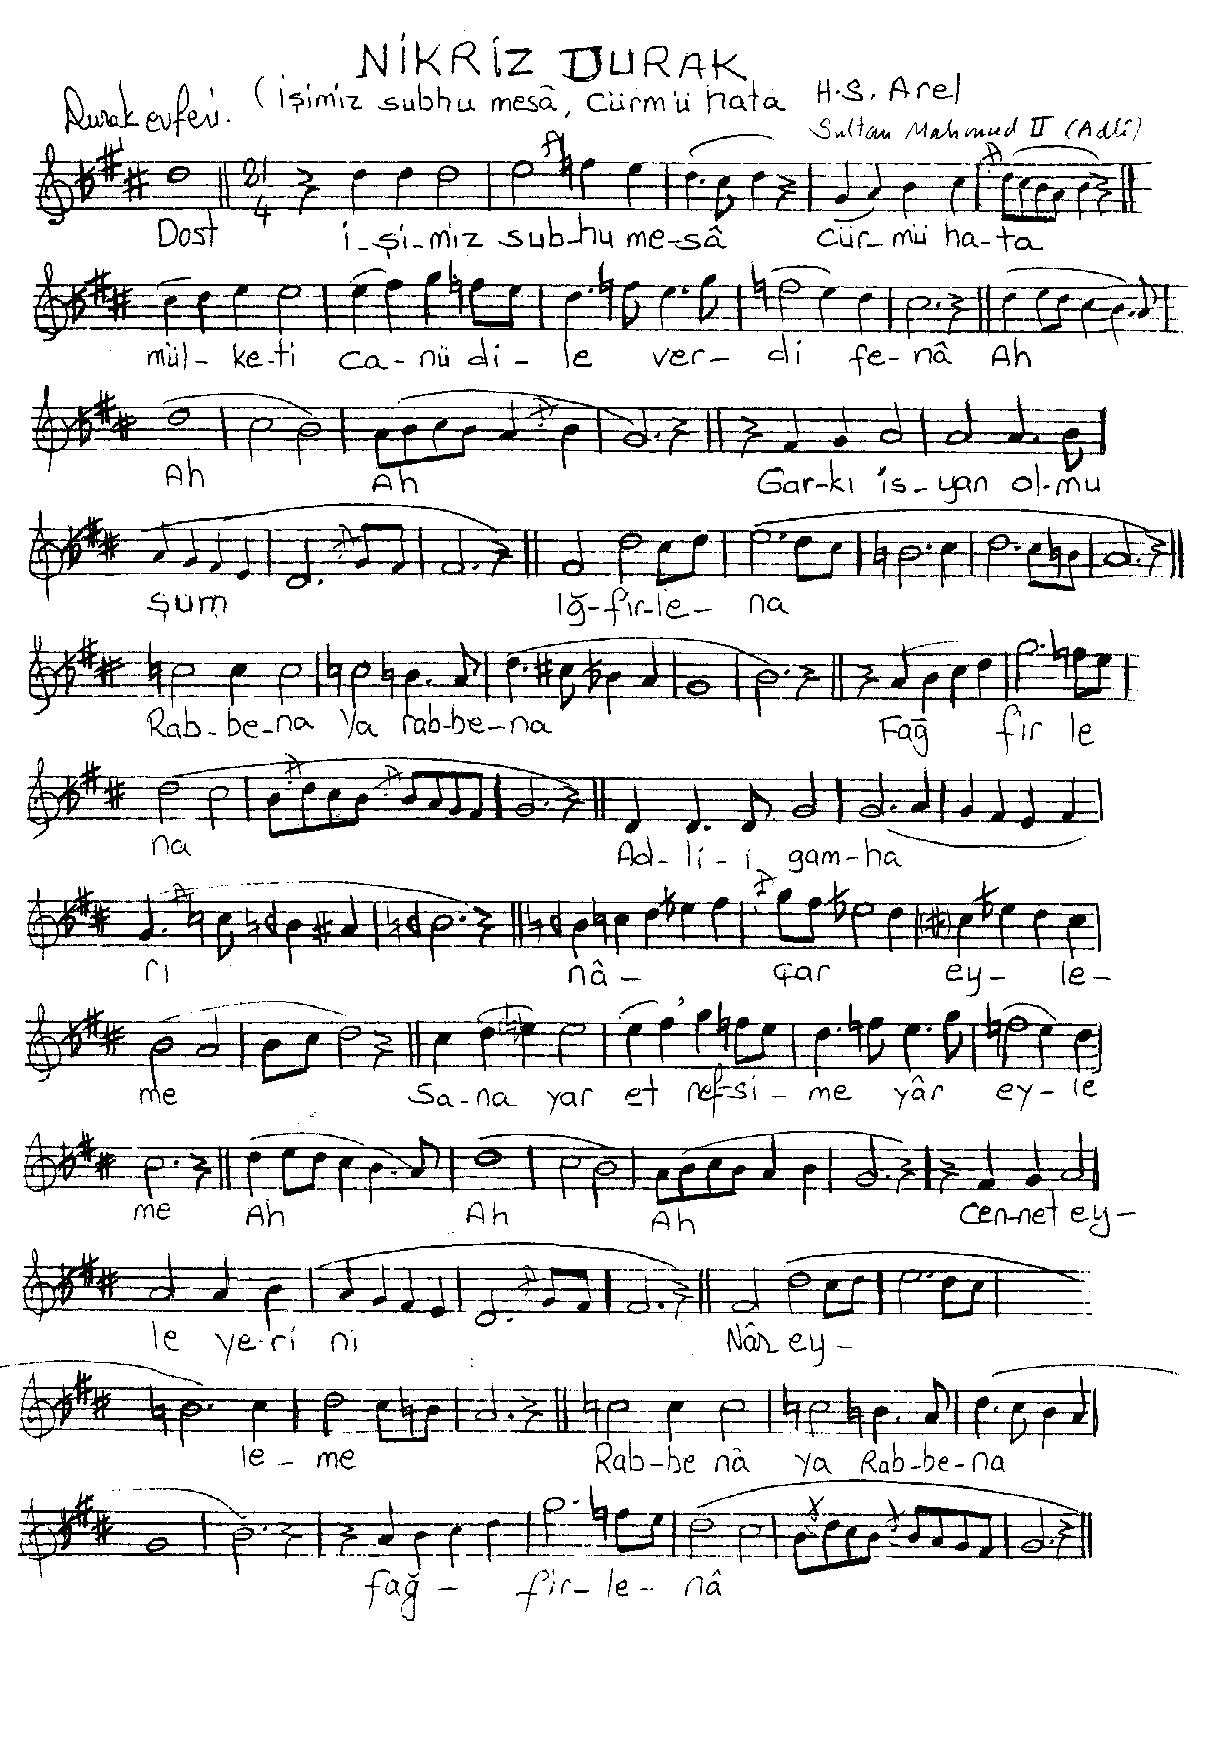 NİKRİZ DURAK
Durak evferi. (işimiz subhu mesâ, cürm'ü hata H.S. Arel
Sultan Mahmud II (Adlî)
21
4
Dost i-şi-miz sub-hu me-sâ cür-mü ha-ta
mül-ke-ti ca-nü di-le ver-di fe-nâ Ah
Ah Ah Gar-kı is-yan ol-mu
şum Iğ-fir-le-na
Rab-be-na Ya rab-be-na Fağ fir le
na Ad-li-i gam-ha
ri nâ-çar ey-le-
me Sa-na yar et nef-si-me yâr ey-le
me Ah Ah Ah cen-net ey-
le ye-ri ni Nâr ey-
le-me Rab-be nâ ya Rab-be-na
fağ-fir-le-nâ